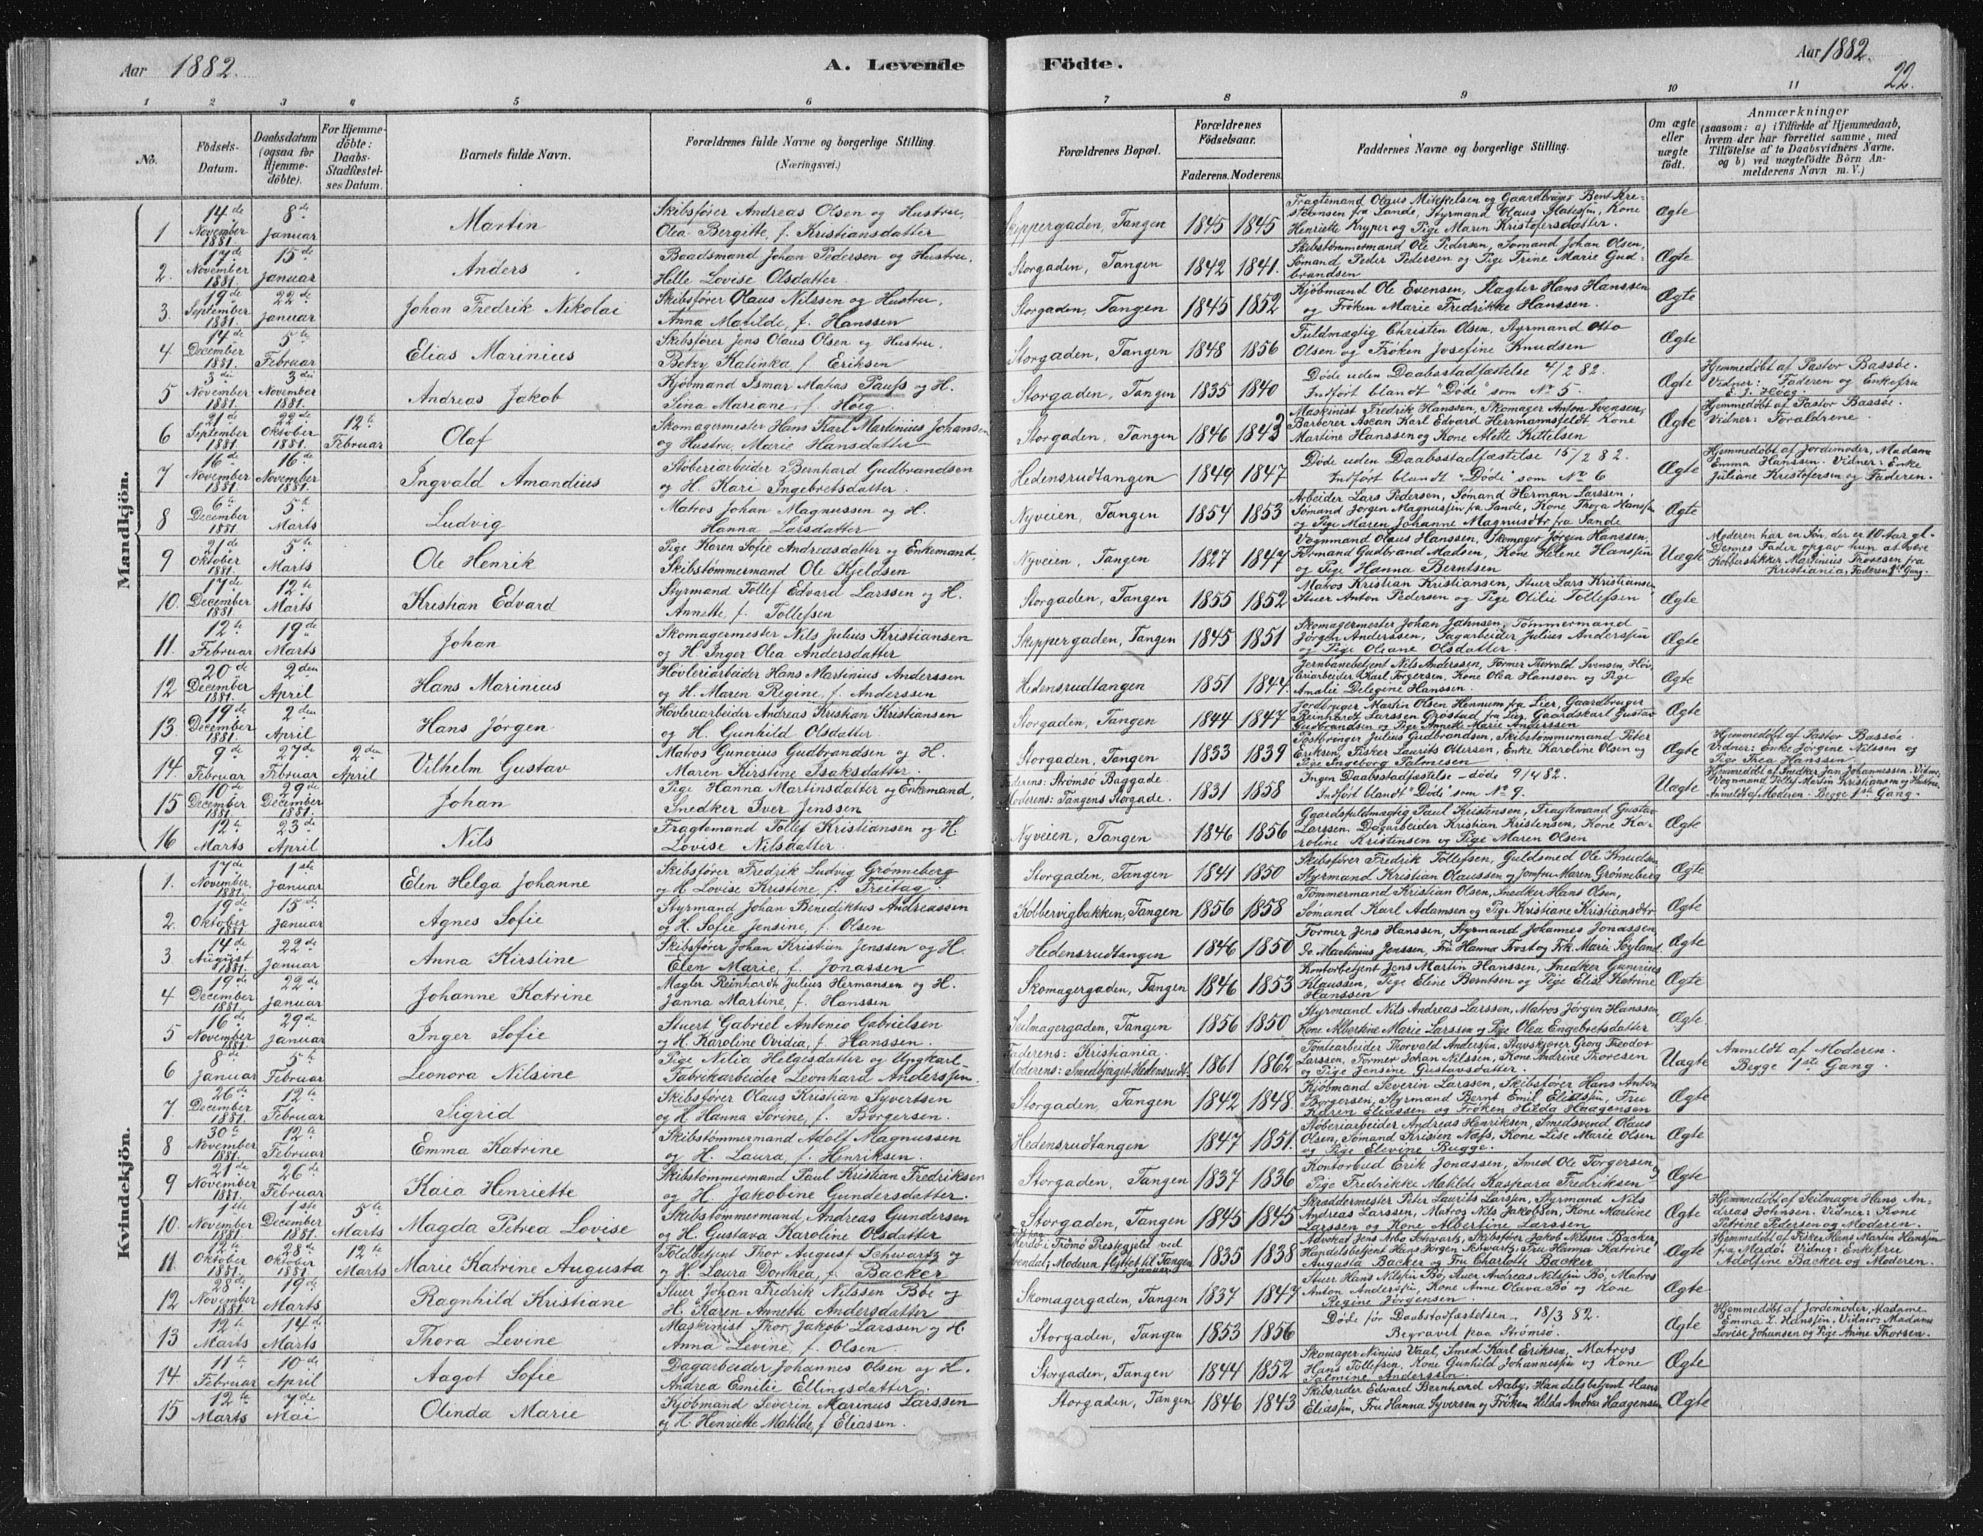 Aar 1882.
A. Levende Födte.
Aar 1882.
22.
1 2 3 4 5 6 7 8 9 10 11
No.
Födsels-Datum.
Daabsdatum (ogsaa for Hjemmedöbte).
For Hjemmedöbte: Daabs-Stadfæstelses Datum.
Barnets fulde Navn.
Forældrenes fulde Navne og borgerlige Stilling. (Næringsvei.)
Forældrenes Bopæl.
Forældrenes Födselsaar.
Faderens. Moderens.
Faddernes Navne og borgerlige Stilling.
Om ægte eller uægte födt.
Anmærkninger
(saasom: a) i Tilfælde af Hjemmedaab, hvem der har forrettet samme, med Tilföielse af to Daabsvidners Navne. og b) ved uægtefödte Börn Anmelderens Navn m. V.)
Mandkjön.
1 14de November 1881. 8de Januar Martin Skibsfører Andreas Olsen og Hustru, Olea Bergitte, f. Kristiansdatter Skippergaden, Tangen 1845 1845 Ægte
2. November 1881. 15de Januar Anders Baadsmand Johan Pedersen og Hustru, Helle Lovise Olsdatter Storgaden, Tangen 1842 1841. Skibstømmermand Ole Pedersen, Sømand Johan Olsen, Sømand Peder Pedersen og Pige Trine Marie Gudbrandsen Ægte
3. 19de September 1881. 22de Januar Johan Fredrik Nikolai Skibsfører Olaus Nilssen og Hustru, Anna Matilde, f. Hanssen Storgaden, Tangen 1845 1852 Kjøbmand Ole Evensen, Slagter Hans Hanssen og Frøken Marie Fredrikke Hanssen. Ægte
4 14de December 1881. 5te Februar Elias Marinius Skibsfører Jens Olaus Olsen og Hustru, Betzy Katinka f. Eriksen Storgaden, Tangen 1848 1856 Fuldmægtig Christen Olsen, Styrmand Otto Olsen og Frøken Josefine Knudsen Ægte
5 3die November 1881. 3die November 1881. Andreas Jakob Kjøbmand Ismar Matias Pauss og H. Sina Mariane, f. Høeg Storgaden, Tangen 1835 1840 Døde uden Daabsstadfæstelse 4/2 82. Indført blandt "Døde" som No 5 Ægte Hjemmedøbt af Pastor Bassøe. Vidner: Faderen og Enkefru
6 21de September 1881. 22de Oktober 1881. 12te Februar Olaf Skomagermester Hans Karl Martinius Johansen og Hustru, Marie Hansdatter Storgaden, Tangen 1846 1843 Maskinist Fredrik Hanssen, Skomager Anton Svensen, Barberer Karl Edvard Herrmannsfeldt, Kone Martine Hanssen og Kone Alette Kittelsen Ægte Hjemmedøbt af Pastor Bassøe. Vidner: Forældrene
7 16de November 1881. 16de November 1881. Ingvald Amandius Støberiarbeider Bernhard Gudbrandsen og H. Kari Ingebretsdatter. Hedensrudtangen 1849 1847 Døde uden Daabsstadfæstelse 15/2 82. Indført blandt "Døde" som No 6 Ægte Hjemmedøbt af Jordemoder, Madame Emma Hanssen. Vidner: Enke Juliane Kristofersen og Faderen.
8 6te December 1881. 5te Marts Ludvig Matros Johan Magnussen og H. Hanna Larsdatter Nyveien, Tangen 1854 1853 Arbeider Lars Pedersen, Sømand Herman Larssen, Sømand Jørgen Magnussen fra Sande, Kone Thora Hanssen og Pige Maren Johanne Magnusdtr fra Sande Ægte
9 21de Oktober 1881. 5te Marts Ole Henrik Pige Karen Sofie Andreasdatter og Enkemand, Skibstømmermand Ole Kjeldsen Nyveien, Tangen 1827 1847 Vognmand Olaus Hanssen, Skomager Jørgen Hanssen, Formand Gudbrand Madsen, Kone Helene Hanssen og Pige Hanna Berntsen Uægte Moderen har en Søn, der er 10 Aar gl. Dennes Fader opgav hun at være Kobberstikker Martinius Thoresen fra Kristiania. Faderen 1ste Gang.
10. 17de December 1881 12te Marts Kristian Edvard Styrmand Tollef Edvard Larssen og H. Annette, f. Tollefsen Storgaden, Tangen 1855 1852 Matros Kristian Kristiansen, Stuer Lars Kristiansen Stuer Anton Pedersen og Pige Otilie Tollefsen Ægte
11. 12te Februar 19de Marts Johan Skomagermester Nils Julius Kristiansen og H. Inger Olea Andersdatter Skippergaden, Tangen 1845 1851 Skomagermester Johan Jahnsen, Tømmermand Jørgen Anderssen, Sagarbeider Julius Anderssen og Pige Oleane Olsdatter. Ægte
12 20de December 1881. 2den April Hans Marinius Høvleriarbeider Hans Martinius Anderssen og H. Maren Regine, f. Anderssen Hedensrudtangen 1851 1844. Jernbanebetjent Nils Anderssen, Former Thorvald Svensen, Høvleriarbeider Karl Jørgersen, Kone Olea Hanssen og Pige Amalie Delegine Hanssen. Ægte
13 19de December 1881. 2den April Hans Jørgen Høvleriarbeider Andreas Kristian Kristiansen og H. Gunhild Olsdatter Storgaden, Tangen 1844 1847 Jordbruger Martin Olsen Hennum fra Lier, Gaardbruger Reinhardt Larssen Grøstad fra Lier, Gaardskarl Gustav Gudbrandsen og Pige Anneke Marie Anderssen Ægte
14. 9de Februar 27de Februar 2den April Vilhelm Gustav Matros Gunerius Gudbrandsen og H. Maren Kirstine Isaksdatter. Storgaden, Tangen 1833 1839 Postbringer Julius Gudbrandsen, Skibstømmermand Peter Eriksen, Fisker Laurits Ottersen, Enke Karoline Olsen og Pige Ingeborg Salmesen Ægte Hjemmedøbt af Pastor Bassøe. Vidner: Enke Jørgine Nilssen og Pige Thea Hanssen.
15 10de December 1881. 29de December 1881. Johan Pige Hanna Martinsdatter og Enkemand, Snedker Iver Jenssen Faderens: Strømsø Baggade Moderens: Tangens Storgade. 1831 1858 Ingen Daabsstadfæstelse - døde 9/4 82. Indført blandt "Døde" som No 9. Uægte Hjemmedøbt af Snedker Jan Johannessen. Vidne, Vognmand Tollef Martin Kristiansen og Hustru. Anmeldt af Moderen. Begge 1ste Gang.
16 12te Marts 23de April Nils Fragtemand Tollef Kristiansen og H. Lovise Nilsdatter. Nyveien, Tangen 1846 1856 Gaardsfuldmægtig Paul Kristensen, Fragtemand Gustav Larssen, Dagarbeider Kristian Kristensen, Kone Karoline Kristensen og Pige Maren Olsen Ægte
Kvindekjön.
1. 17de November 1881. 1ste Januar Elen Helga Johanne Skibsfører Fredrik Ludvig Grønneberg og H. Lovise Kristine f. Freitag. Storgaden, Tangen 1841 1850 Skibsfører Fredrik Tollefsen, Guldsmed Ole Knudsen, Styrmand Kristian Olaussen og Jomfru Maren Grønneberg Ægte
2. 19de Oktober 1881. 15de Januar Agnes Sofie Styrmand Johan Benediktus Andreassen og H. Sofie Jensine, f. Olsen Kobbervigbakken, Tangen 1856 1858 Tømmermand Kristian Olsen, Snedker Hans Olsen, Sømand Karl Adamsen og Pige Kristiane Kristiansdtr Ægte
3 14de August 1881. 22de Januar Anna Kirstine Skibsfører Johan Kristian Jenssen og H. Elen Marie, f. Jonassen Hedensrudtangen 1846 1850 Former Jens Hanssen, Styrmand Johannes Jonassen, Martinius Jenssen, Fru Hanna Trost og Frk. Marie Ægte
4 19de December 1881. 22de Januar Johanne Katrine Mægler Reinhardt Julius Hermansen og H. Janna Martine, f. Hanssen Skomagergaden, Tangen 1846 1853 Kontorbetjent Jens Martin Hanssen, Snedker Gunerius Klaussen, Pige Eline Berntsen og Pige Elise Katrine Hanssen Ægte
5 16de November 1881. 29de Januar Inger Sofie Stuert Gabriel Antonio Gabrielsen og H. Karoline Ovidia, f. Hanssen. Seilmagergaden, Tangen 1856 1850 Styrmand Nils Andreas Larssen, Matros Jørgen Hanssen, Kone Albertine Marie Larssen og Pige Olea Engebretsdatter Ægte
6 8de Januar 5te Februar Leonora Nilsine Pige Nilia Helgesdatter og Ungkarl, Fabrikarbeider Leonhard Anderssen. Faderens: Kristiania. Moderens: Smedbjaget Hedensrudt. 1861 1862 Tomtearbeider Thorvald Anderssen, Stavskjører Georg Theodor Larssen, Former Johan Nilssen, Kone Andrine Thoresen og Pige Jensine Gustavsdatter. Uægte Anmeldt af Moderen. Begge 1ste Gang.
7 26de December 1881. 12te Februar Sigrid Skibsfører Olaus Kristian Syvertsen og H. Hanna Sørine, f. Borgersen. Storgaden, Tangen 1842 1848 Kjøbmand Severin Larssen, Skibsfører Hans Anton Borgersen, Styrmand Bernt Emil Eliassen, Fru Karen Eliassen og Frøken Hilda Haagensen Ægte
8 30te November 1881. 12te Februar Emma Katrine Skibstømmermand Adolf Magnussen og H. Laura, f. Henriksen. Hedensrudtangen 1847 1851. Støberiarbeider Andreas Henriksen, Smedsvend Olaus Olsen, Sømand Kristen Næss, Kone Lise Marie Olsen og Pige Elevine Bugge. Ægte
9 21de November 1881. 26de Februar Kaia Henriette Skibstømmermand Paul Kristian Fredriksen og H. Jakobine Gundersdatter. Storgaden, Tangen 1837 1836 Kontorbud Erik Jonassen, Smed Ole Torgersen, Pige Fredrikke Matilde Kaspara Fredriksen Ægte
10. 1ste November 1881 1ste December 1881 5te Marts Magda Petrea Lovise Skibstømmermand, Andreas Gundersen og H. Gustava Karoline Olsdatter Storgaden, Tangen 1845 1845 Skræddermester Peter Laurits Larssen, Styrmand Nils Andreas Larssen, Matros Nils Jakobsen, Kone Martine Larssen og Kone Albertine Larssen Ægte Hjemmedøbt af Seilmager Hans Andreas Johnsen. Vidner: Kone Petrine Pedersen og Moderen.
11. 12te Oktober 1881. 28de Oktober 1881. 12te Marts Marie Katrine Augusta Toldbetjent Thor August Schwartz og H. Laura Dorthea, f. Backer Merdø i Tromø Præstegjeld ved Arendal; Moderen flyttet til Tangen Januar 1835 1838 Advokat Jens Arbo Schwartz, Skibsfører Jakob Nilssen Backer, Handelsbetjent Hans Jørgen Schwartz, Fru Hanna Katrine Augusta Backer og Fru Charlotte Backer Ægte Hjemmedøbt af Fisker Hans Martin Hanssen fra Merdø. Vidner: Enkefru Adolfine Backer og Moderen.
12 28de November 1881. 19de Marts Ragnhild Kristiane Stuer Johan Fredrik Nilssen Bøe og H. Karen Annette Andersdatter Skomagergaden, Tangen 1837 1847 Stuer Hans Nilssen Bø, Stuer Andreas Nilssen Bø, Matros Anton Anderssen, Kone Anne Olava Bø og Kone Regine Jørgensen Ægte
13 12te Marts 14de Marts Thora Levine Maskinist Thor Jakob Larssen og H. Anna Levine f. Olsen Storgaden, Tangen 1853 1856 Døde før Daabsstadfæstelsen 18/3 82. Begravet paa Strømsø. Ægte Hjemmedøbt af Jordemoder, Madame Emma L. Hanssen, Vidner: Madame Lovise Johansen og Pige Anine Thorsen.
14 11te Februar 10de April Aagot Sofie Dagarbeider Johannes Olsen og H. Andrea Emilie Ellingsdatter. Storgaden, Tangen 1844 1852 Skomager Ninius Vaal, Smed Karl Eriksen, Matros Hans Tollefsen, Kone Gunhild Johannessen og Kone Salmine Anderssen Ægte
15 12te Marts 7de Mai Olinda Marie Kjøbmand Severin Marinus Larssen og H. Henriette Matilde, f. Eliassen. Storgaden, Tangen 1846 1843 Skibsreder Edvard Bernhard Aaby, Handelsbetjent Hans Eliassen, Fru Hanna Syversen og Frøken Hilda Andrea Haagensen Ægte